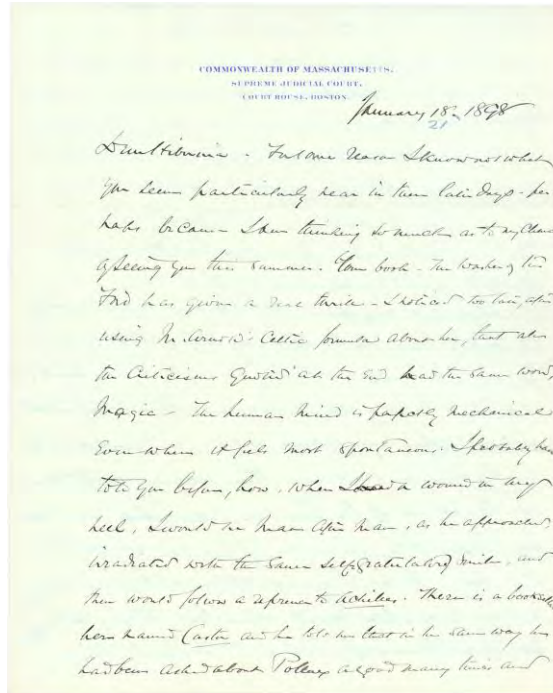 COMMONWEALTH OF MASSACHUSETTS.
SUPREME JUDICIAL COURT,
COURT HOUSE, BOSTON.
January 18, 1898
21
Dear Hibernia - For some reason I know not what
you seem particularly near in these latter days - per
haps because I am thinking so much as to my chance
of seeing you this summer. Your book - The Washer of the
Ford has given a real thrill - I noticed too late, after
using M. Arnold's Celtic formula above her, that all
the Criticisms quoted at the End had the same word,
Magic - The human mind is mechanical
Even where it feels most spontaneous. I probably have
told you before, how, when I had a wound in my
heel, I would see man after man, as he approached,
irradiated with the same self gratulatory smile, and
then would follow a reference to Achilles. There is a bookseller
here named Castor and he told me that in the same way he
had been asked about Pollux a good many times and